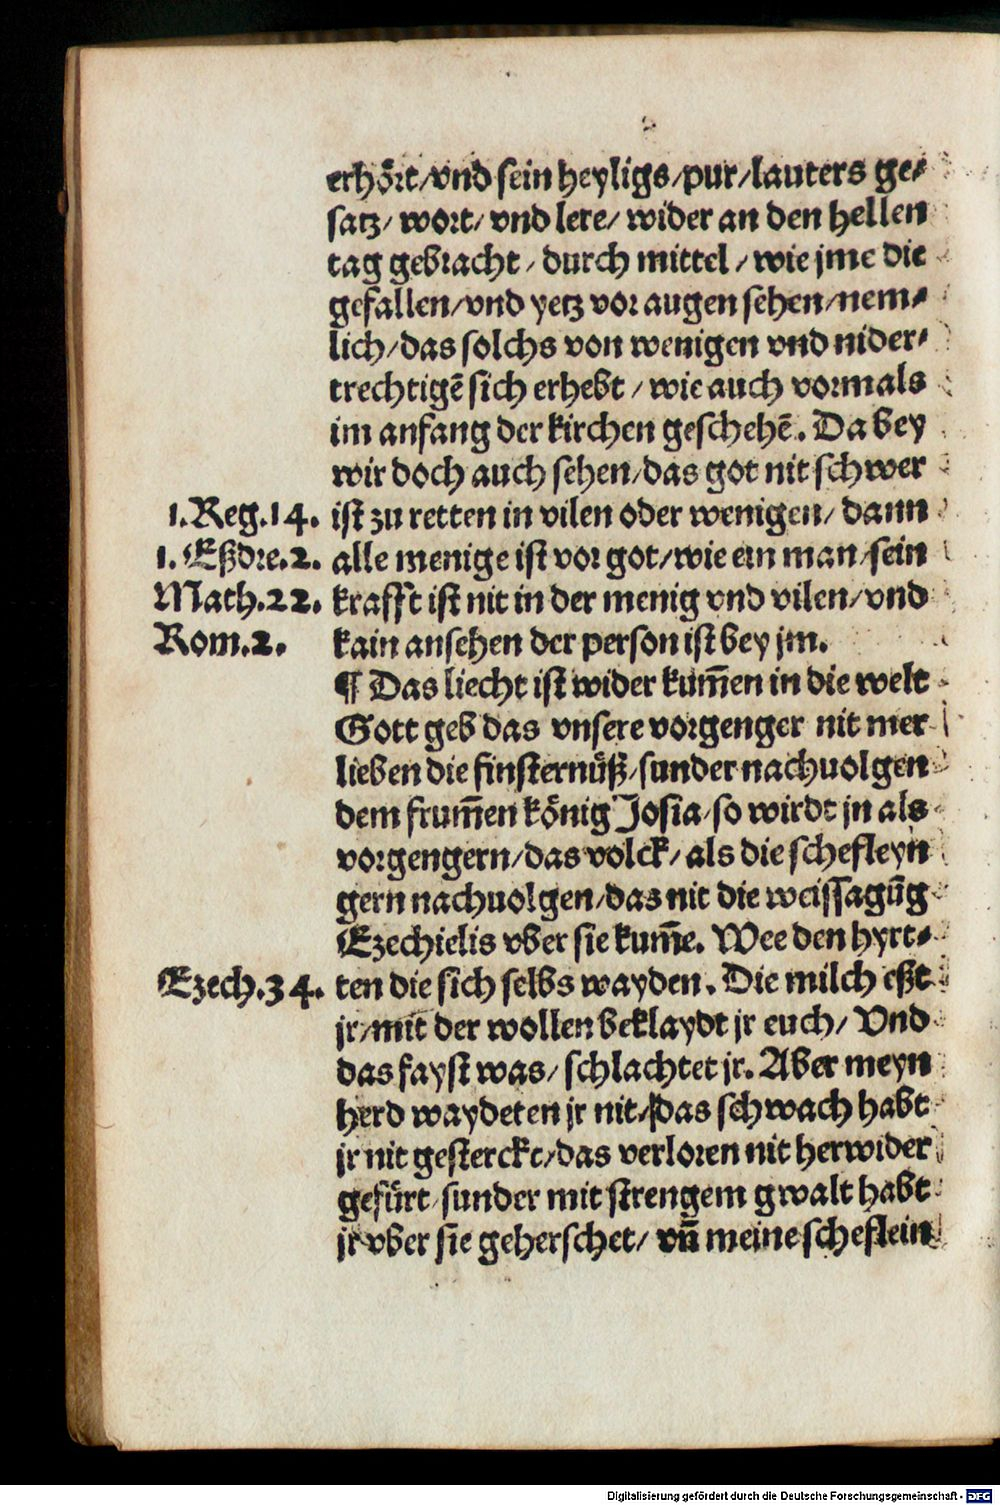 erhört/vnd sein heyligs/pur/lauters ge⸗
satz/ wort/ vnd lere/ wider an den hellen
tag gebracht / durch mittel / wie jme die
gefallen/vnd yetz vor augen sehen/nem⸗
lich/das solchs von wenigen vnd nider⸗
trechtigē sich erhebt / wie auch vormals
im anfang der kirchen geschehē. Da bey
wir doch auch sehen/das got nit schwer
1.Reg.14. ist zu retten in vilen oder wenigen/ dann
1. Eßdre.2. alle menige ist vor got/wie ein man/sein
Math.22. krafft ist nit in der menig vnd vilen/vnd
Rom.2. kain ansehen der person ist bey jm.
¶ Das liecht ist wider kum̄en in die welt
Gott geb das vnsere vorgenger nit mer
lieben die finsternüß/sunder nachuolgen
dem frum̄en könig Josia/so wirdt jn als
vorgengern/das volck/ als die schefleyn
gern nachuolgen/das nit die weissagūg
Ezechielis vber sie kum̄e. Wee den hyrt⸗
Ezech.34. ten die sich selbs wayden. Die milch eßt
jr/mit der wollen beklaydt jr euch/ Vnd
das fayst was/ schlachtet jr. Aber meyn
herd waydeten jr nit/das schwach habt
jr nit gesterckt/das verloren nit herwider
gefürt/sunder mit strengem gwalt habt
jr vber sie geherschet/ vn̄ meine scheflein
Digitalisierung gefördert durch die Deutsche Forschungsgemeinschaft - DFG